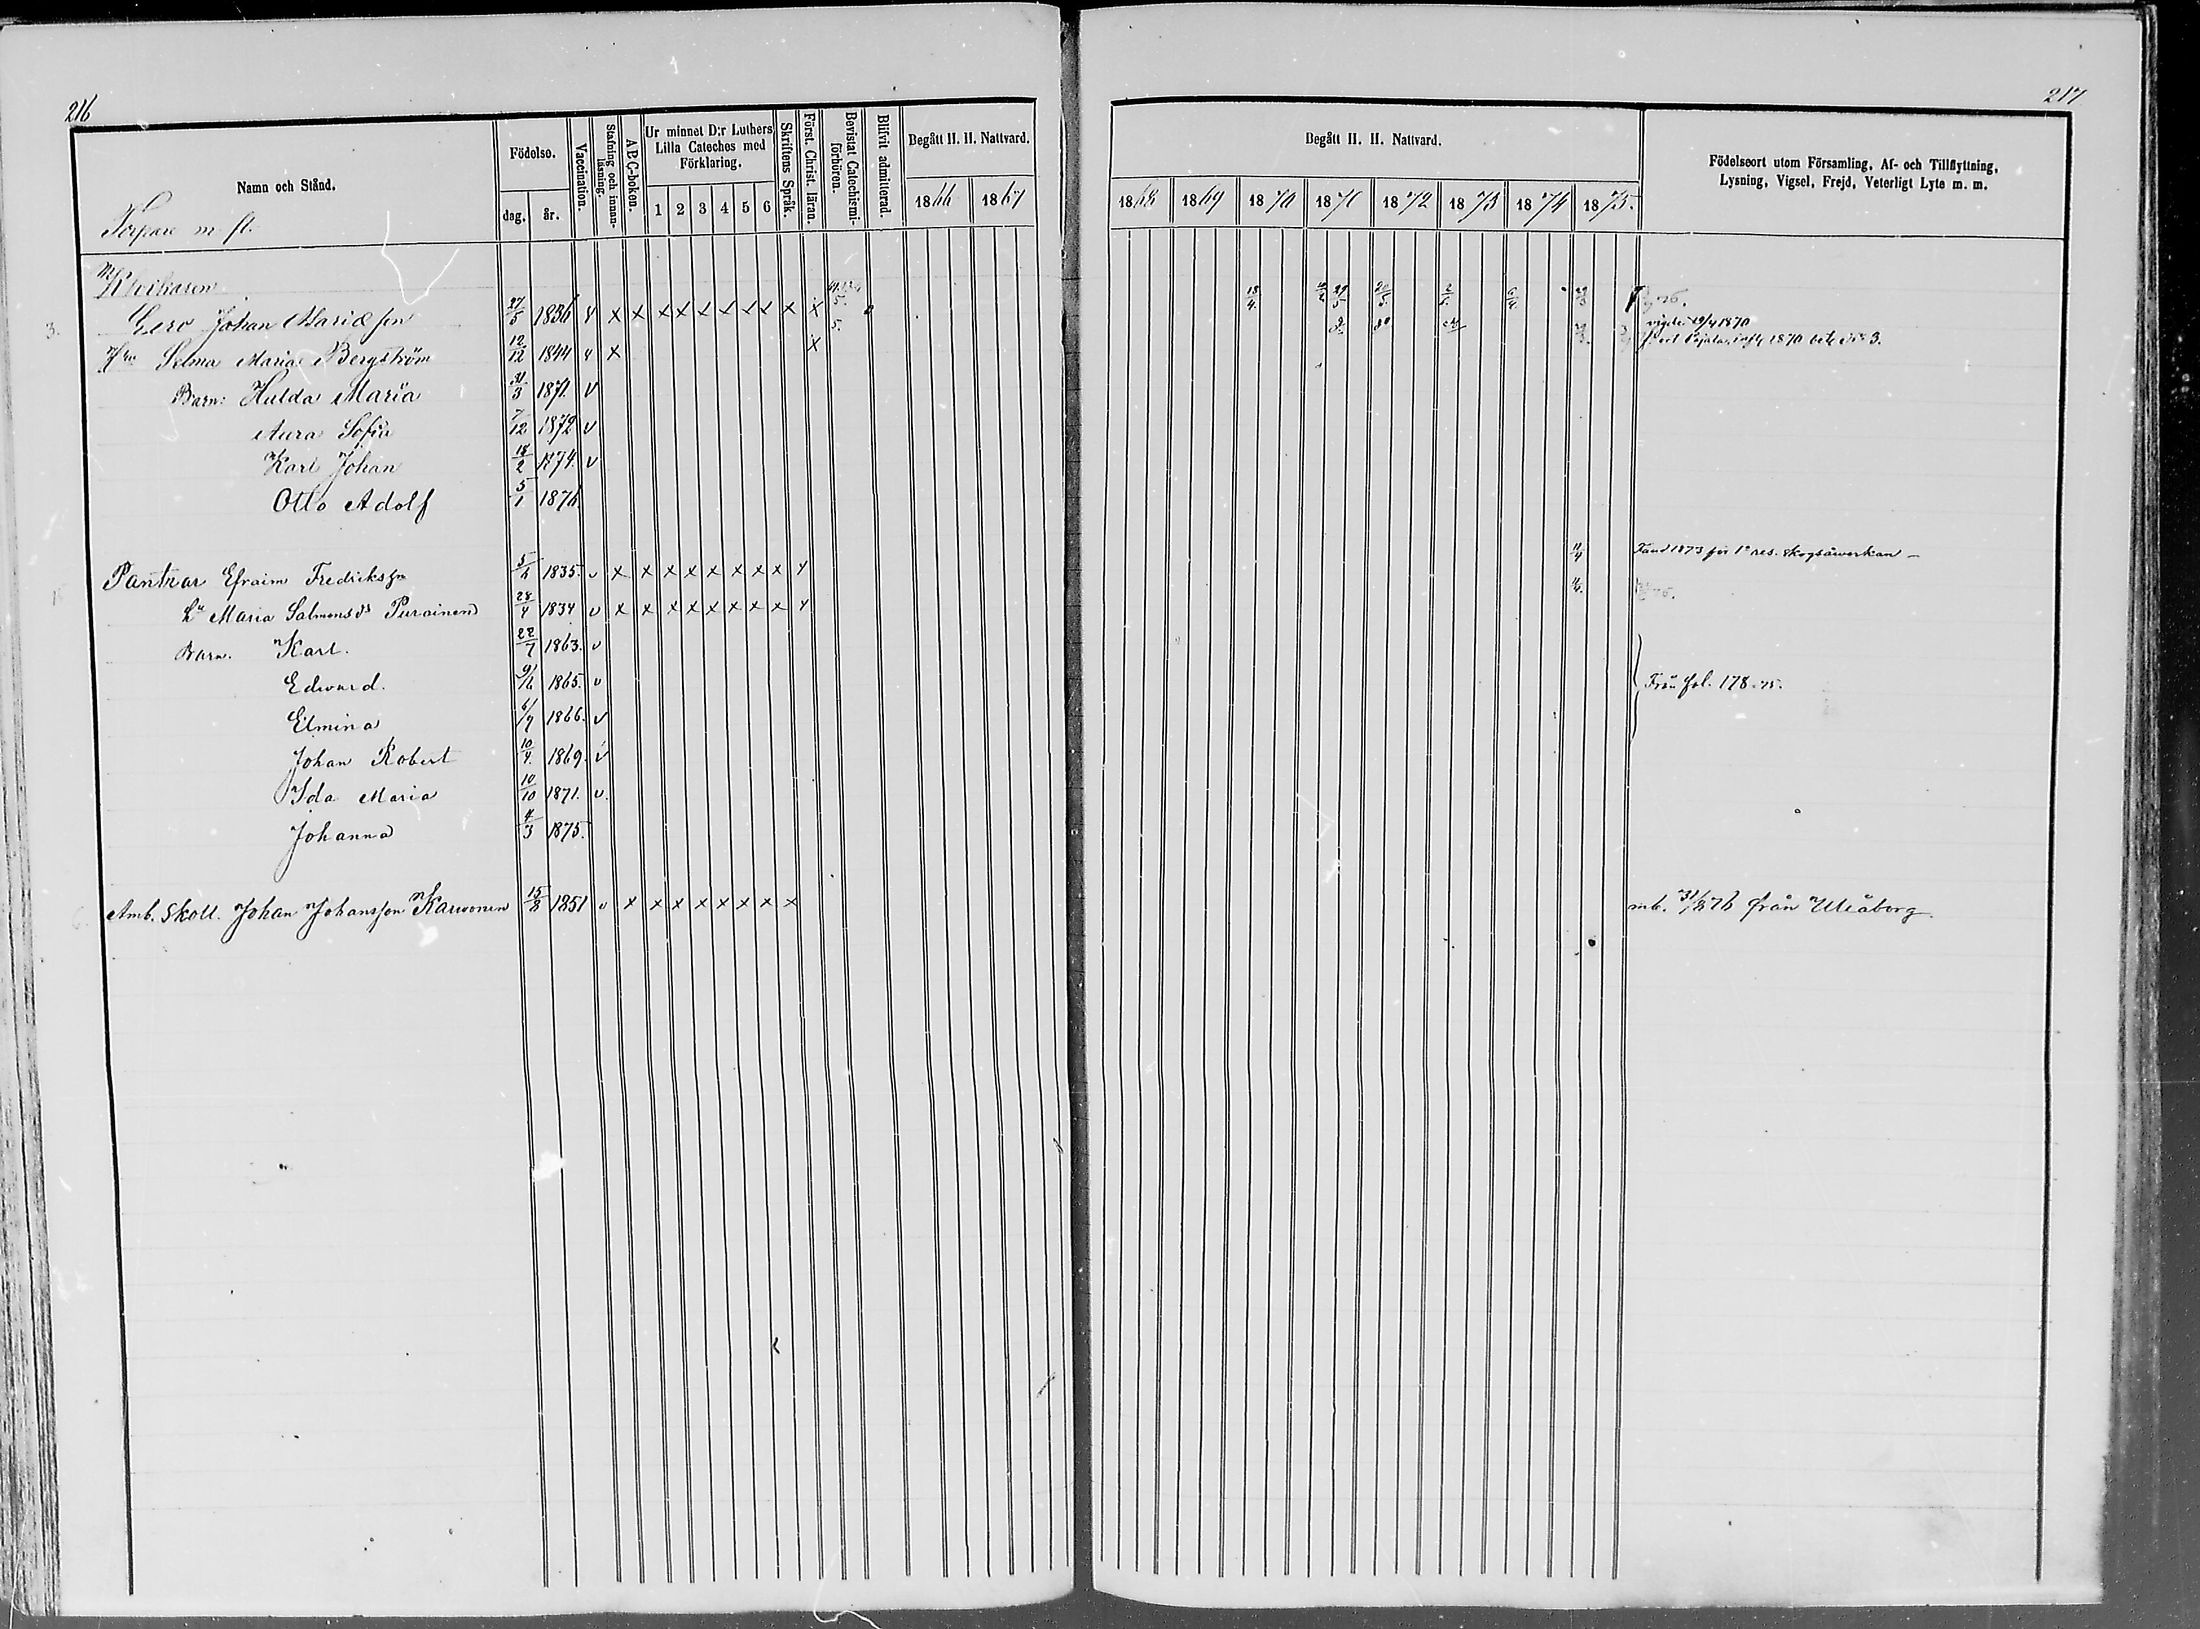 216
217
Namn och Stånd.
Födelse.
dag.
år.
Vaccination.
Stafning och innanläsning.
ABC-boken.
Ur minnet D:r Luthers Lilla Cateches med Förklaring.
1 2 3 4 5 6
Skriftens Språk.
Först. Christ. läran.
Bevistat Catechismiförhören.
Blifvit admitterad.
Begått H. H. Nattvard.
1866 1867
Begått H. H. Nattvard.
1868 1869 1870 1871 1872 1873 1874 1875.
Födelseort utom Församling, Af- och Tillflyttning,
Lysning, Vigsel, Frejd, Veterligt Lyte m. m.
Torpare m. fl.
3. Gero Johan 27/5 1836 x x x x x x x x x x
vigde 19/4 1870
Selma Maria Bergström 12/12 1844 x x
Barn: Hulda Maria 31/3 1871. v
Aura Sofia 7/12 1872 v
Karl Johan 18/2 1874. v
Otto Adolf 5/1 1876
Pantnar Efraim Fredriksn 1835. v x x x x x x x x 11/4
hu Maria Salmonsdr Purainen 28/4 1834 v x x x x x x x x
Barn. Karl. 22/7 1863. v
Edward. 1865. v Från fol. 178 75.
Elmina 6/7 1866. v
Johan Robert 10/4. 1869. v
Ida Maria 10/10 1871. v.
Johanna 4/3 1875.
Amb. Skoll. Johan Johansson Karvonen 15/8 1851 v x x x x x x x x från Uleåborg.